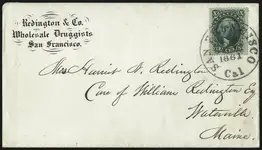 Redington & Co.
Wholesale Druggists
San Francisco.
SAN FRANCISCO
1861
Cal
Miss Harriet N. Redington
Care of William Redington Esq
Waterville
Maine.